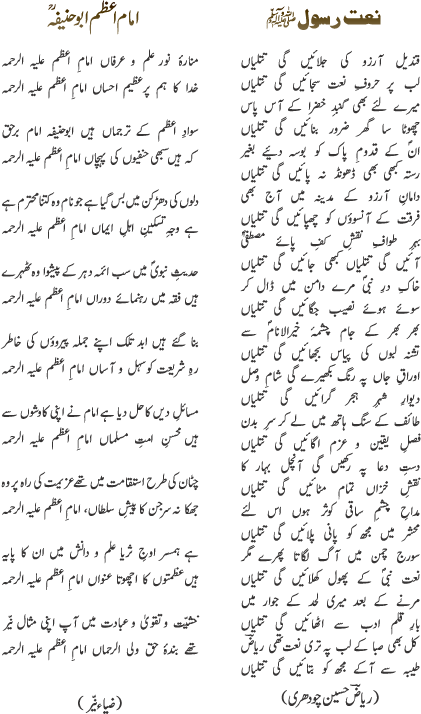 نعت رسول ﷺ
قندیل آرزو کی جلائیں گی تتلیاں
لب پر حروفِ نعت سجائیں گی تتلیاں
میرے لئے بھی گنبدِ خضرا کے آس پاس
چھوٹا سا گھر ضرور بنائیں گی تتلیاں
ان کے قدومِ پاک کو بوسہ دیئے بغیر
رستہ کبھی بھی ڈھونڈ نہ پائیں گی تتلیاں
دامانِ آرزو کے مدینہ میں آج بھی
فرقت کے آنسوؤں کو چھپائیں گی تتلیاں
بہرِ طوافِ نقشِ کفِ پائے مصطفیٰؐ
آئیں گی تتلیاں کبھی جائیں گی تتلیاں
خاکِ درِ نبیؐ مرے دامن میں ڈال کر
سوئے ہوئے نصیب جگائیں گی تتلیاں
بھر بھر کے جام چشمۂ خیرالانامؐ سے
تشنہ لبوں کی پیاس بجھائیں گی تتلیاں
اوراقِ جاں پہ رنگ بکھیرے گی شامِ وصل
دیوارِ شہرِ ہجر گرائیں گی تتلیاں
طائف کے سنگ ہاتھ میں لے کر سرِ بدن
فصلِ یقین و عزم اگائیں گی تتلیاں
دستِ دعا پہ رکھیں گی آنچل بہار کا
نقشِ خزاں تمام مٹائیں گی تتلیاں
مداحِ چشمِ ساقیِ کوثر ہوں اس لئے
محشر میں مجھ کو پانی پلائیں گی تتلیاں
سورج چمن میں آگ لگاتا پھرے مگر
نعتِ نبیؐ کے پھول کھلائیں گی تتلیاں
مرنے کے بعد میری لحد کے جوار میں
بارِ قلم ادب سے اٹھائیں گی تتلیاں
کل بھی صبا کے لب پہ تری نعت تھی ریاضؔ
طیبہ سے آکے مجھ کو بتائیں گی تتلیاں
(ریاضؔ حسین چودھری)
امام اعظم ابوحنیفہؒ
منارۂ نورِ علم و عرفاں امامِ اعظم علیہ الرحمہ
خدا کا ہم پر عظیم احساں امامِ اعظم علیہ الرحمہ
سوادِ اعظم کے ترجماں ہیں ابوحنیفہ امام برحق
کہ ہیں سبھی حنفیوں کی پہچاں امامِ اعظم علیہ الرحمہ
دلوں کی دھڑکن میں بس گیا ہے جو نام وہ کتنا محترم ہے
ہے وجہِ تسکینِ اہلِ ایماں امامِ اعظم علیہ الرحمہ
حدیثِ نبویؐ میں سب ائمہ دہر کے پیشوا وہ ٹھہرے
ہیں فقہ میں رہنمائے دوراں امامِ اعظم علیہ الرحمہ
بنا گئے ہیں ابد تلک اپنے جملہ پیروؤں کی خاطر
رہِ شریعت کو سہل و آساں امامِ اعظم علیہ الرحمہ
مسائلِ دیں کا حل دیا ہے امام نے اپنی کاوشوں سے
ہیں محسنِ امتِ مسلماں امامِ اعظم علیہ الرحمہ
چٹان کی طرح استقامت میں تھے عزیمت کی راہ پر وہ
جھکا نہ سر جن کا پیشِ سلطاں، امامِ اعظم علیہ الرحمہ
ہے ہمسرِ اوجِ ثریا علم و دانش میں ان کا پایہ
ہیں عظمتوں کا اچھوتا عنواں امامِ اعظم علیہ الرحمہ
خشیّت و تقویٰ و عبادت میں آپ اپنی مثال نیّر
تھے بندۂ حق ولی الرحماں امامِ اعظم علیہ الرحمہ
(ضیاء نیّر)